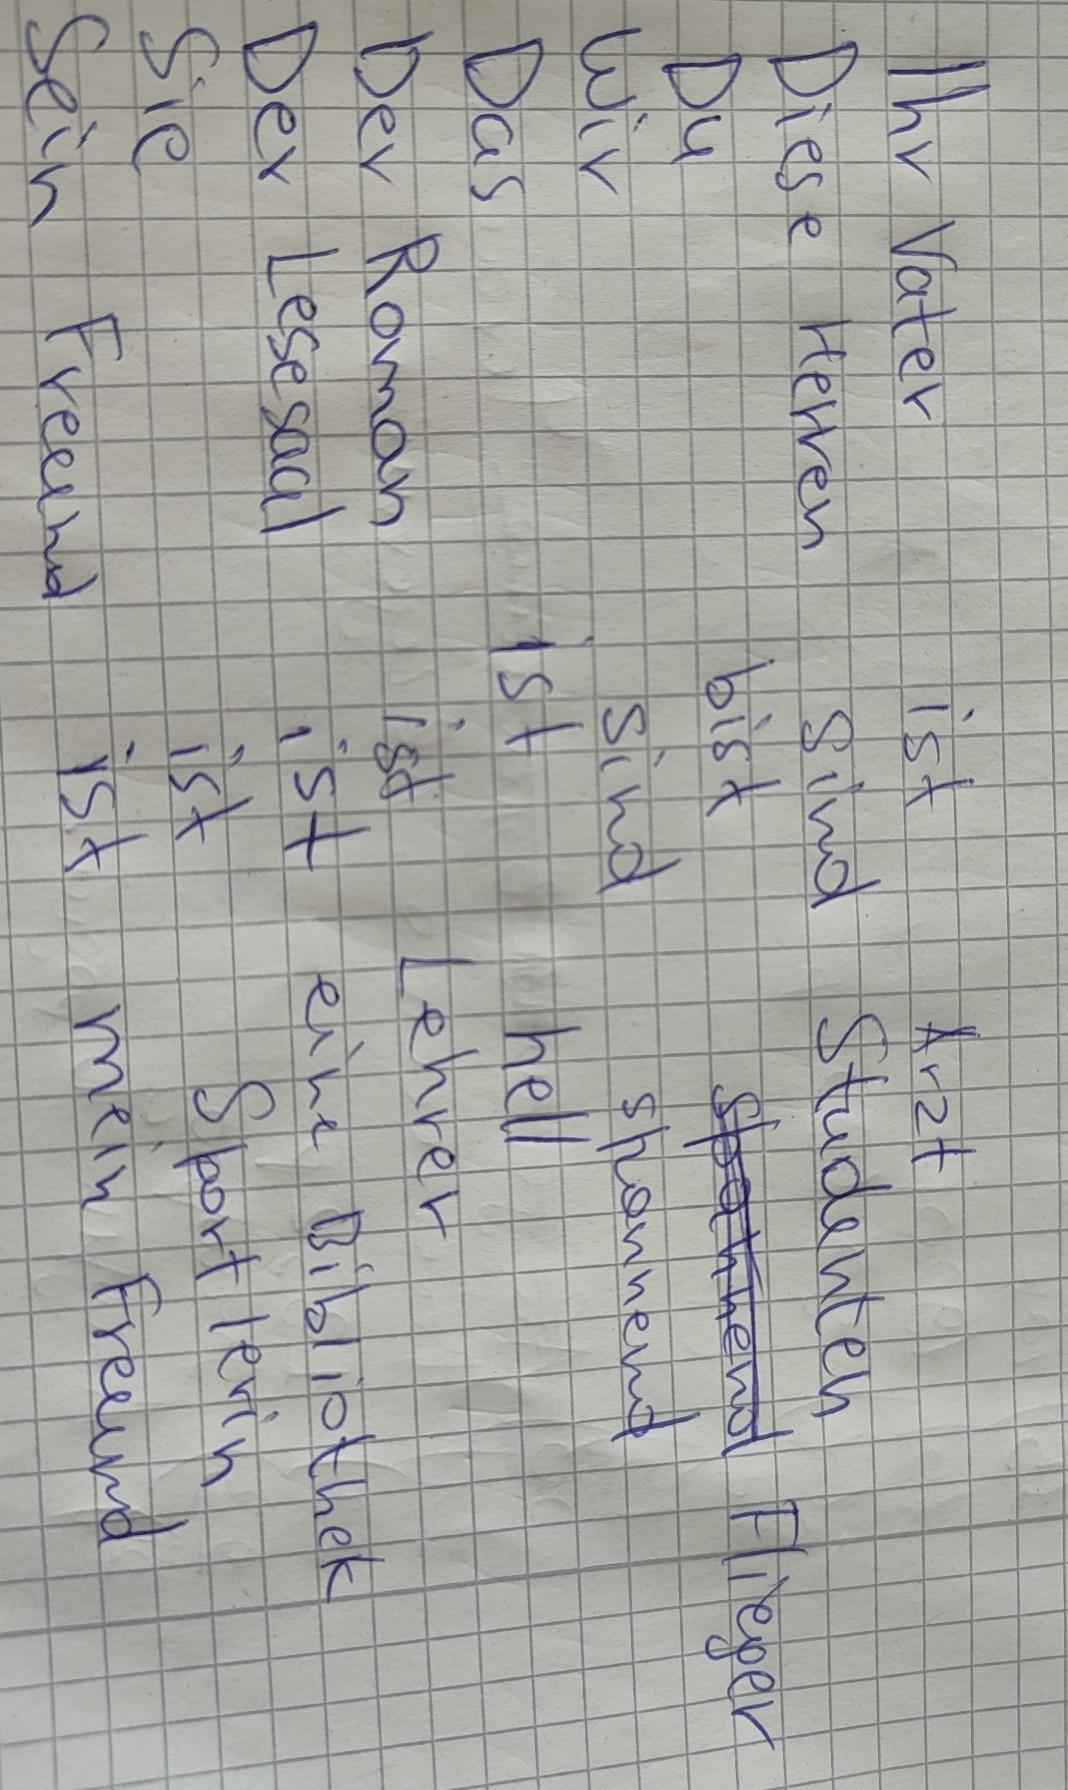 Ihr Vater ist Arzt
Diese Herren sind Studenten
Du bist Flieger
Wir sind spannend
Das ist hell
Der Roman ist Lehrer
Der Lesesaal ist eine Bibliothek
Sie ist Sportlerin
Sein Freund ist mein Freund